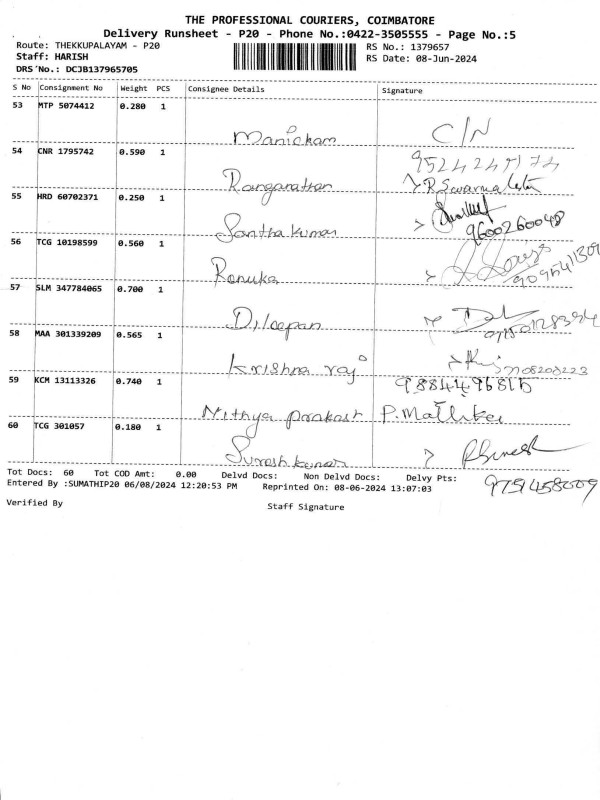 THE PROFESSIONAL COURIERS, COIMBATORE
Delivery Runsheet - P20 - Phone No.:0422-3505555 - Page No.:5
Route: THEKKUPALAYAM - P20
RS No.: 1379657
Staff: HARISH
RS Date: 08-Jun-2024
DRS No.: DCJB137965705
S No Consignment No Weight PCS Consignee Details Signature
53 MTP 5074412 0.280 1
Manickam C/N
54 CNR 1795742 0.590 1
Ranganathan
55 HRD 60702371 0.250 1
Santhakumar 9600260048
56 TCG 10198599 0.560 1
Renuka
57 SLM 347784065 0.700 1
Dileepan
58 MAA 301339209 0.565 1
Krishna raj
59 KCM 13113326 0.740 1
Nithya prakash P.Mallika
60 TCG 301057 0.180 1
Suresh kumar
Tot Docs: 60 Tot COD Amt: 0.00 Delvd Docs: Non Delvd Docs: Delvy Pts:
Entered By :SUMATHIP20 06/08/2024 12:20:53 PM Reprinted On: 08-06-2024 13:07:03
9751458009
Verified By
Staff Signature